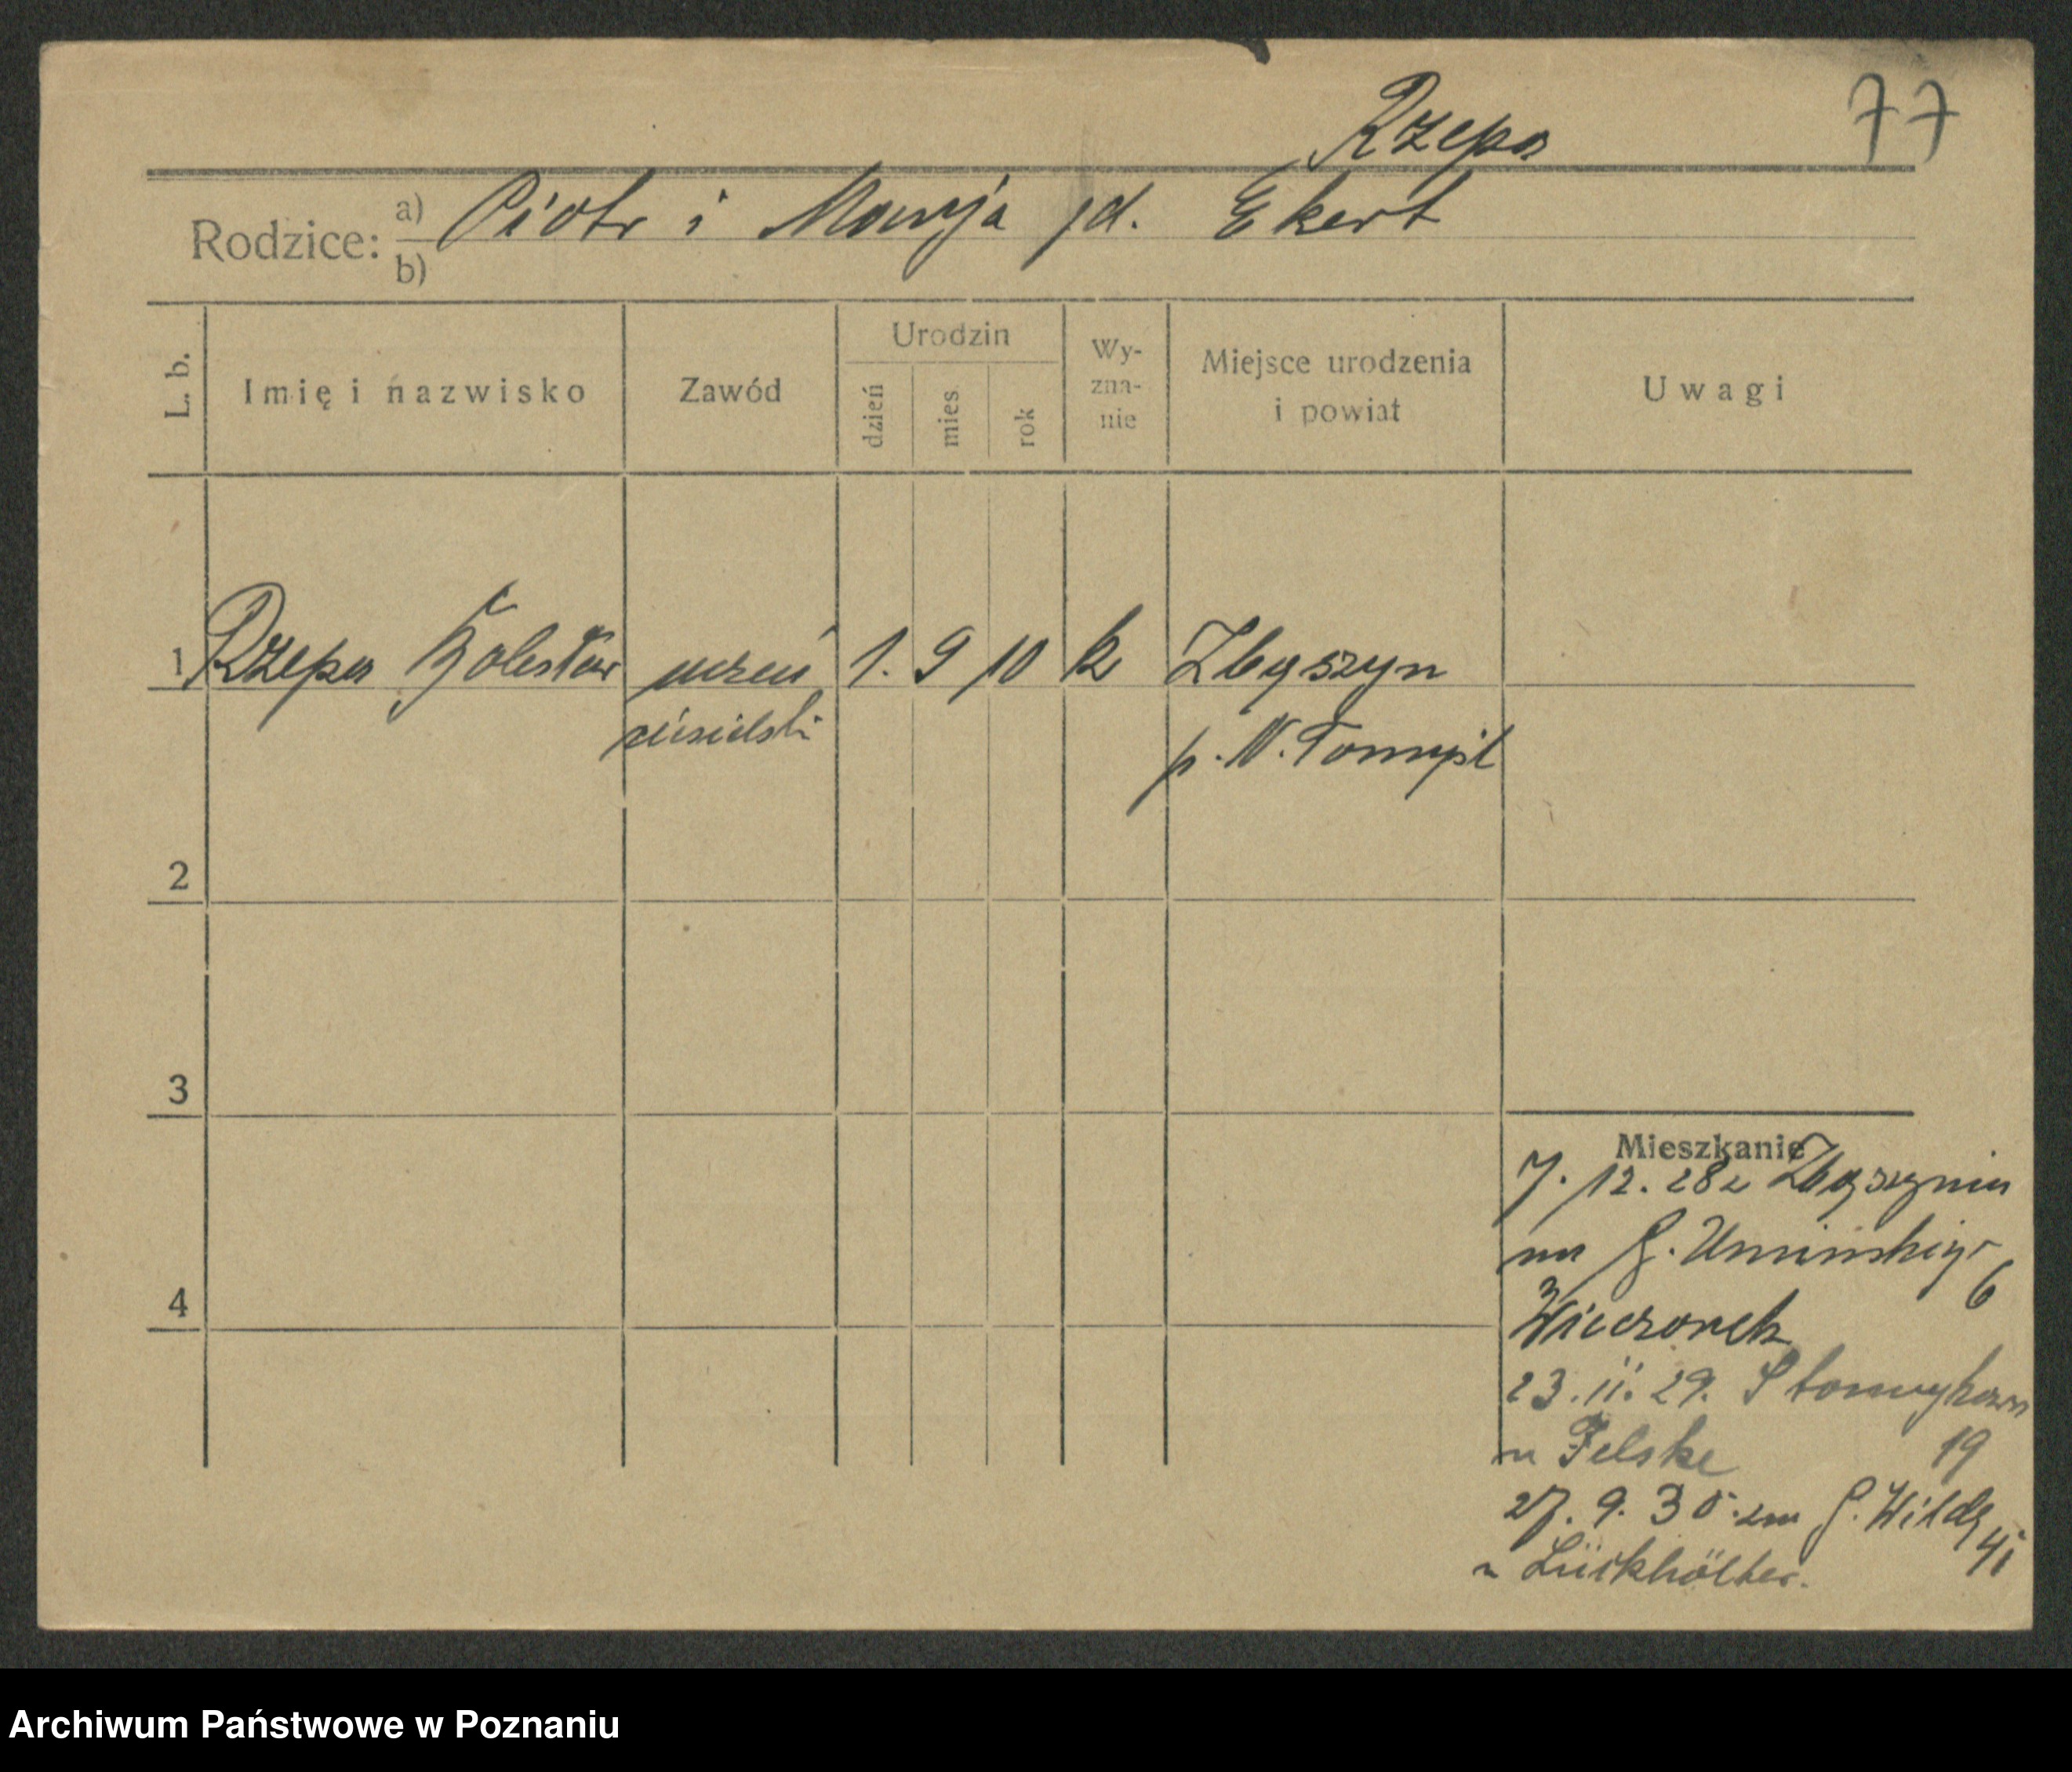 Rzepa 77
Rodzice: a) Piotr i Marja jd. Ekert
b)
L. b. Imię i nazwisko Zawód Urodzin dzień mies rok Wy-zna-nie Miejsce urodzenia i powiat Uwagi
1 Rzepa Bolesław uczeń 1. 9 10 k Zbąszyn
ciesielski p. N. Tomyśl
2
3
Mieszkanie
7. 12. 28 z Zbąszynia
na G. Umińskiego 6
4
Wieczorek
23. 11. 29.
u Felske 19
27. 9. 30. zm G. Wilda 41
u Lückhölter.
Archiwum Państwowe w Poznaniu